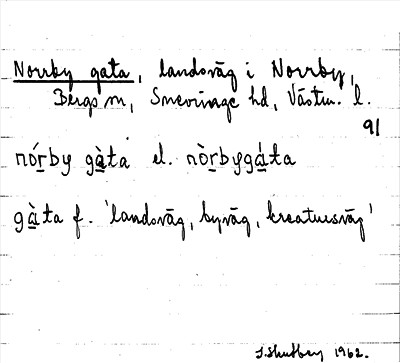 Norrby gata, landsväg i Norrby,
Bergs sn, Snevringe hd, Västm. l.
91
nór̲by gà̲ta el. nòr̲bygá̲ta
gà̲ta f. 'landsväg, byväg, kreatursväg'
1962.